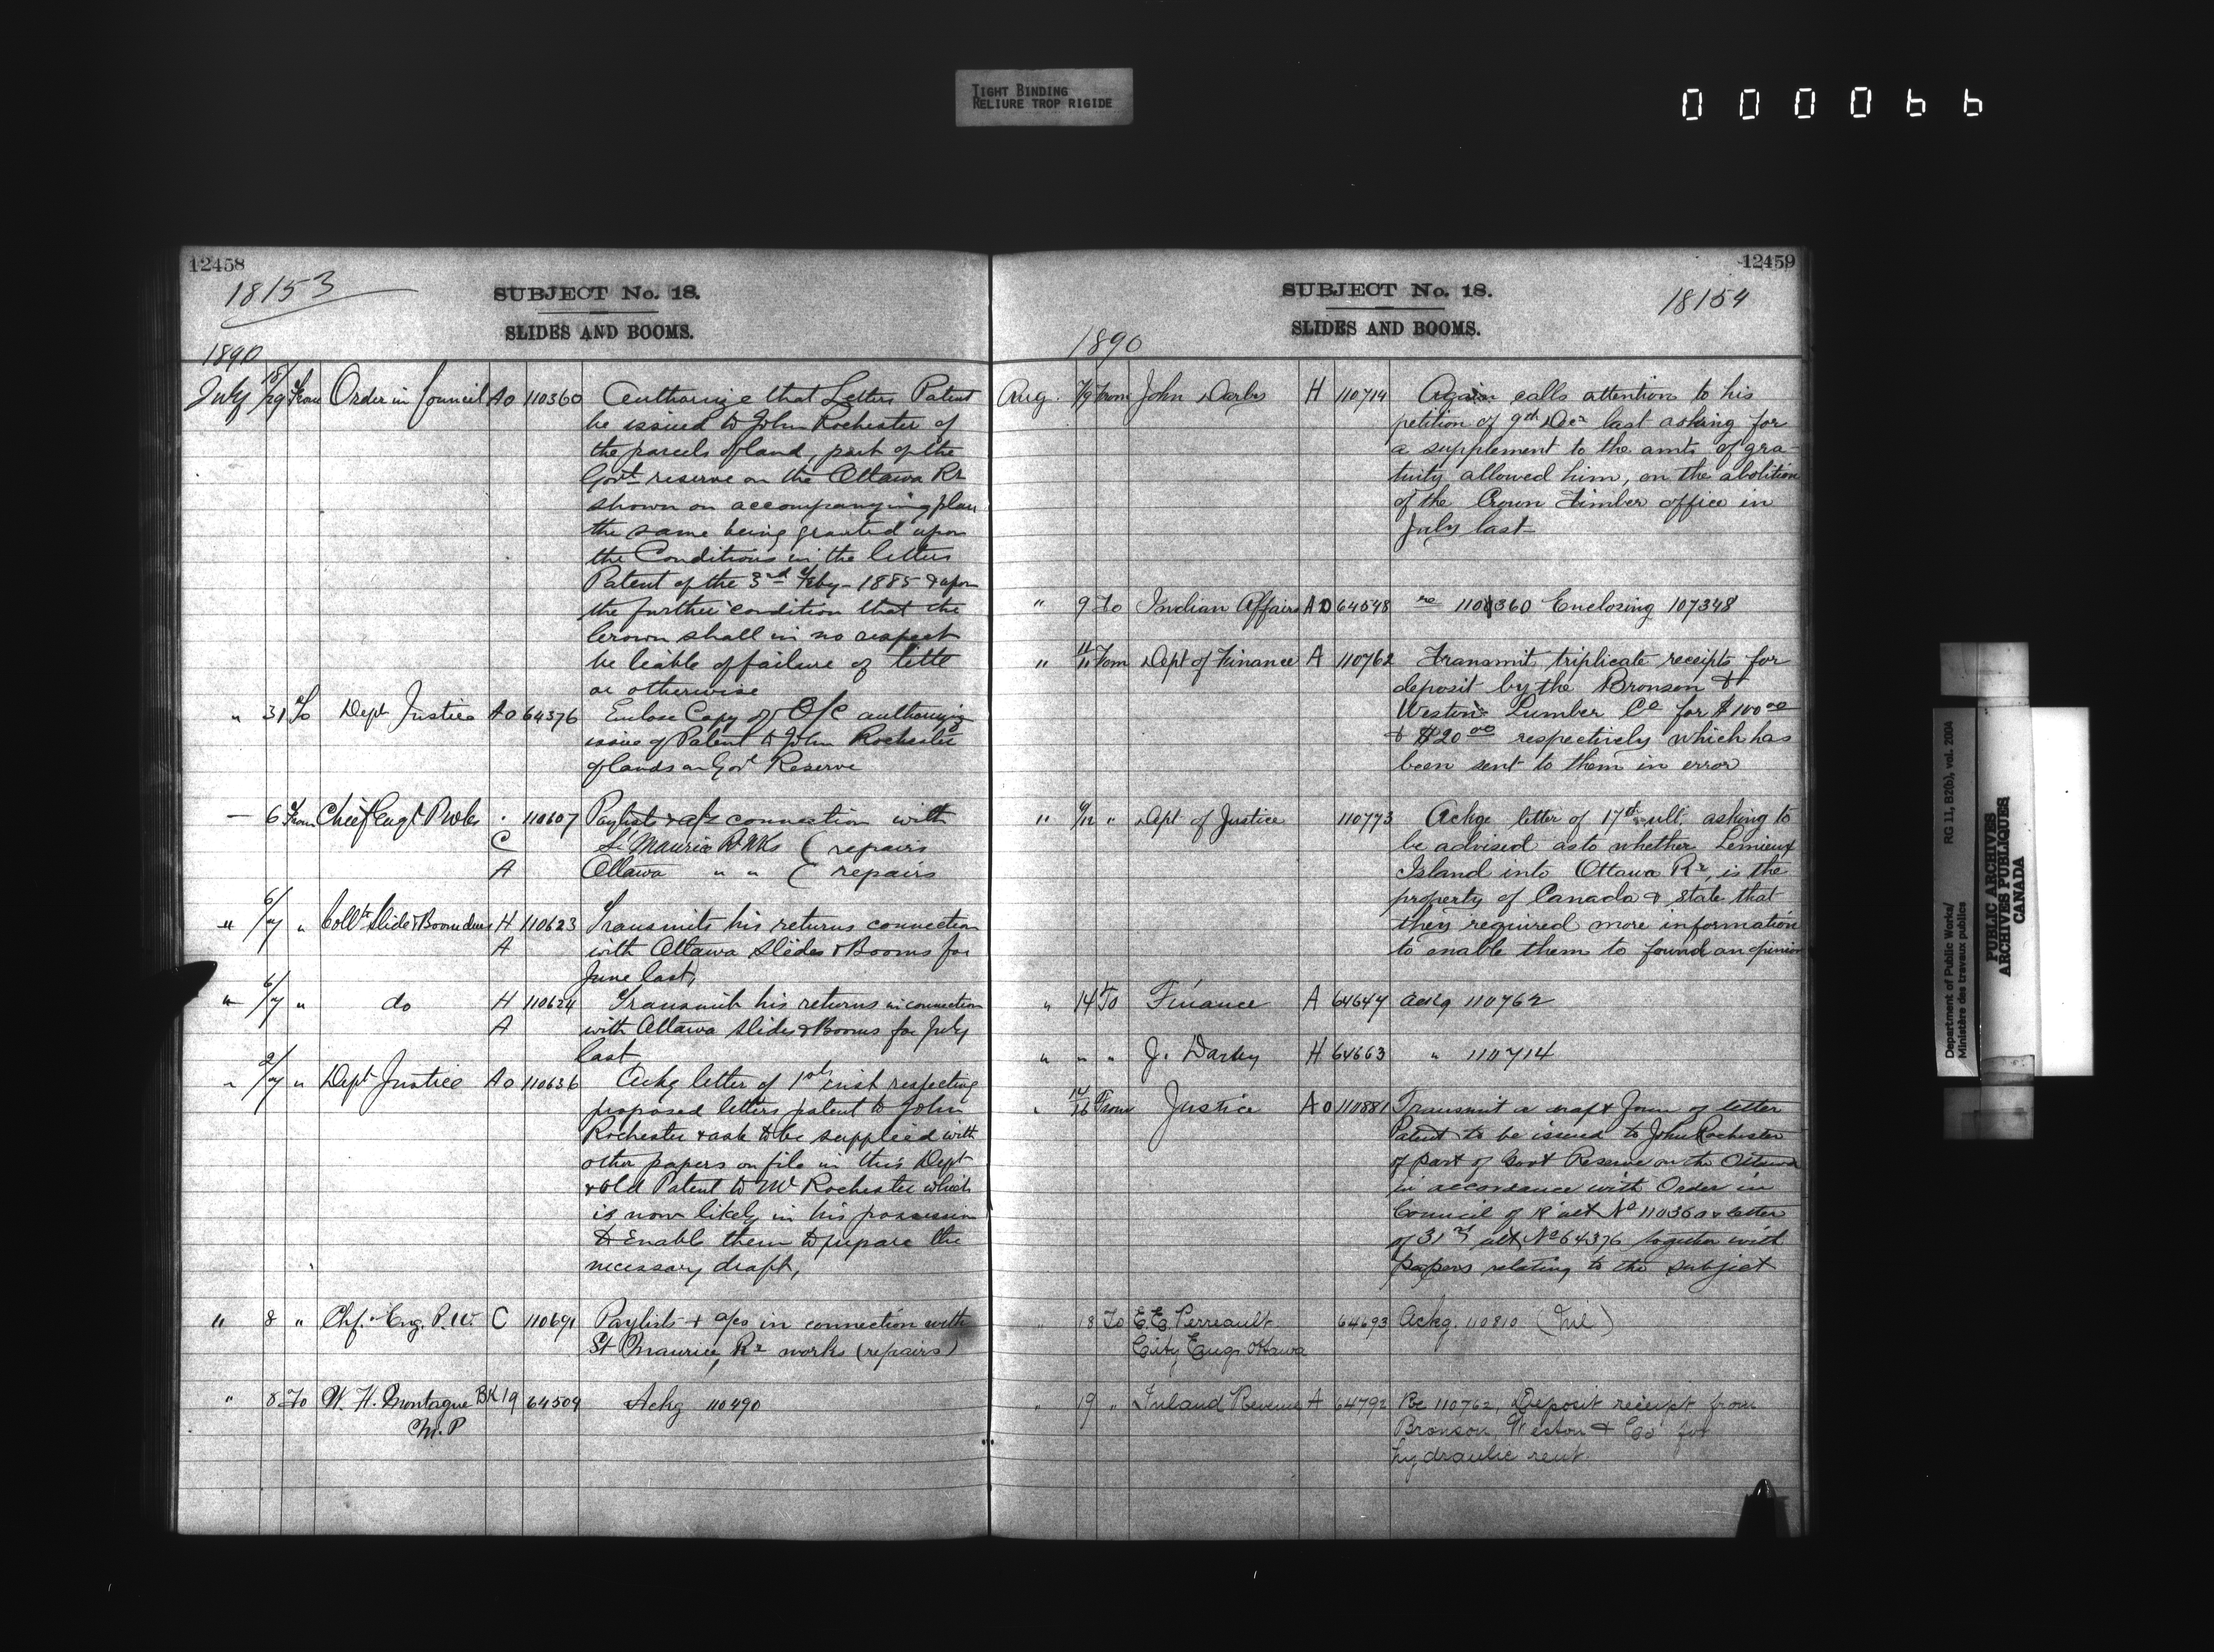 TIGHT BINDING
RELIURE TROP RIGIDE
000066
12458
18153
SUBJECT No. 18.
SLIDES AND BOOMS.
1890
July 18/29 From Order in Council AO 110360 Authorize that Letters Patent
be issued to John Rochester of
the parcels of land, part of the
Govt reserve on the Ottawa Rr
shown on accompanying plan
the same being granted upon
the Conditions in the letters
Patent of the 3rd Feby- 1885 & upon
the further condition that the
Crown shall in no respect
be liable of failure of title
or otherwise
" 31 To Dept Justice AO 64376 Enclose Copy of O/C authorizing
issue of Patent to John Rochester
of lands on Govt Reserve
— 6 From Chief Engr P. Wks " 110607 Paylists & a/cs connection with
C St Maurice R Wks ( repairs
A Ottawa " " ( repairs
" 6/7 " Collr Slide & Boom dues H 110623 Transmits his returns connection
A with Ottawa Slides & Booms for
June last,
" 6/7 " do H 110624 Transmits his returns in connection
A with Ottawa Slides & Booms for July
last
" 2/7 " Dept Justice AO 110636 Ackg letter of 1st inst respecting
proposed letters patent to John
Rochester & ask to be supplied with
other papers on file in this Dept
& old Patent to Mr Rochester which
is now likely in his possession
to Enable them to prepare the
necessary draft,
" 8 " Chf. Eng. P. W. C 110691 Paylists & a/cs in connection with
St Maurice Rr works (repairs)
" 8 To W. H. Montague BK19 64509 Ackg 110490
M.P
12459
18154
SUBJECT No. 18.
SLIDES AND BOOMS.
1890
Aug. 7/9 From John Darby H 110714 Again calls attention to his
petition of 9th Decr last asking for
a supplement to the amt. of gra-
tuity allowed him, on the abolition
of the Crown Timber office in
July last—
" 9 To Indian Affairs AO 64548 re 110360 Enclosing 107348
" 11/11 From Dept of Finance A 110762 Transmit triplicate receipts for
deposit by the Bronson &
Weston Lumber Co for $100 00
& $20 00 respectively which has
been sent to them in error
" 9/12 " Dept of Justice 110773 Ackge letter of 17th ult. asking to
be advised as to whether Lemieux
Island into Ottawa Rr, is the
property of Canada & state that
they required more information
to enable them to found an opinion
" 14 To Finance A 64644 ackg 110762
" " " J. Darby H 64663 " 110714
" 14/16 From Justice AO 110881 Transmit a draft form of letter
Patent to be issued to John Rochester
of part of Govt Reserve on the Ottawa
in accordance with Order in
Council of 18 ult No 110360 & letter
of 31st ult No 64376 together with
papers relating to the subject
" 18 To E.E. Perreault 64693 Ackg. 110810
City Engr. Ottawa
" 19 " Inland Revenue A 64792 Re 110762, Deposit receipt from
Bronson, Weston & Co for
hydraulic rent.
Department of Public Works/ RG 11, B2(b), vol. 2004
Ministère des travaux publics
PUBLIC ARCHIVES
ARCHIVES PUBLIQUES
CANADA